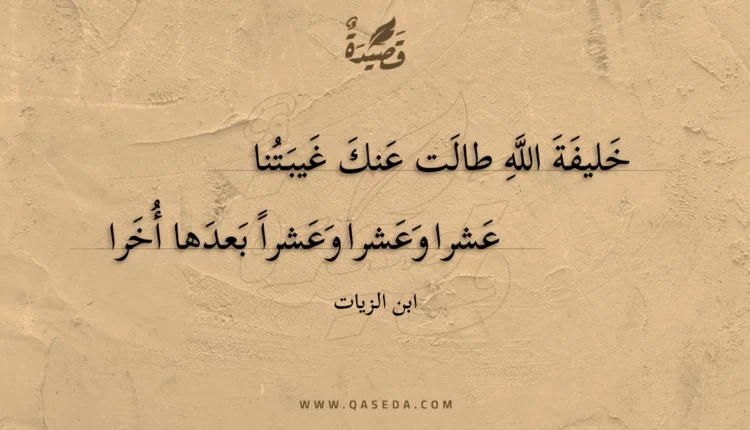 قَصِيدَةٌ
خَليفَةَ اللَّهِ طالَت عَنكَ غَيبَتُنا
عَشرا وَعَشرا وَعَشراً بَعدَها أُخَرا
ابن الزيات
WWW.QASEDA.COM